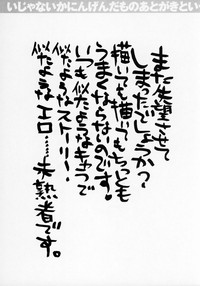 いじゃないかにんげんだものあとがきとい
また失望させて
しまったでしょうか?
描いても描いてもちっとも
うまくならないのです。
いつも似たようなキャラで
似たようなストーリー、
似たようなエロ……未熟者です。